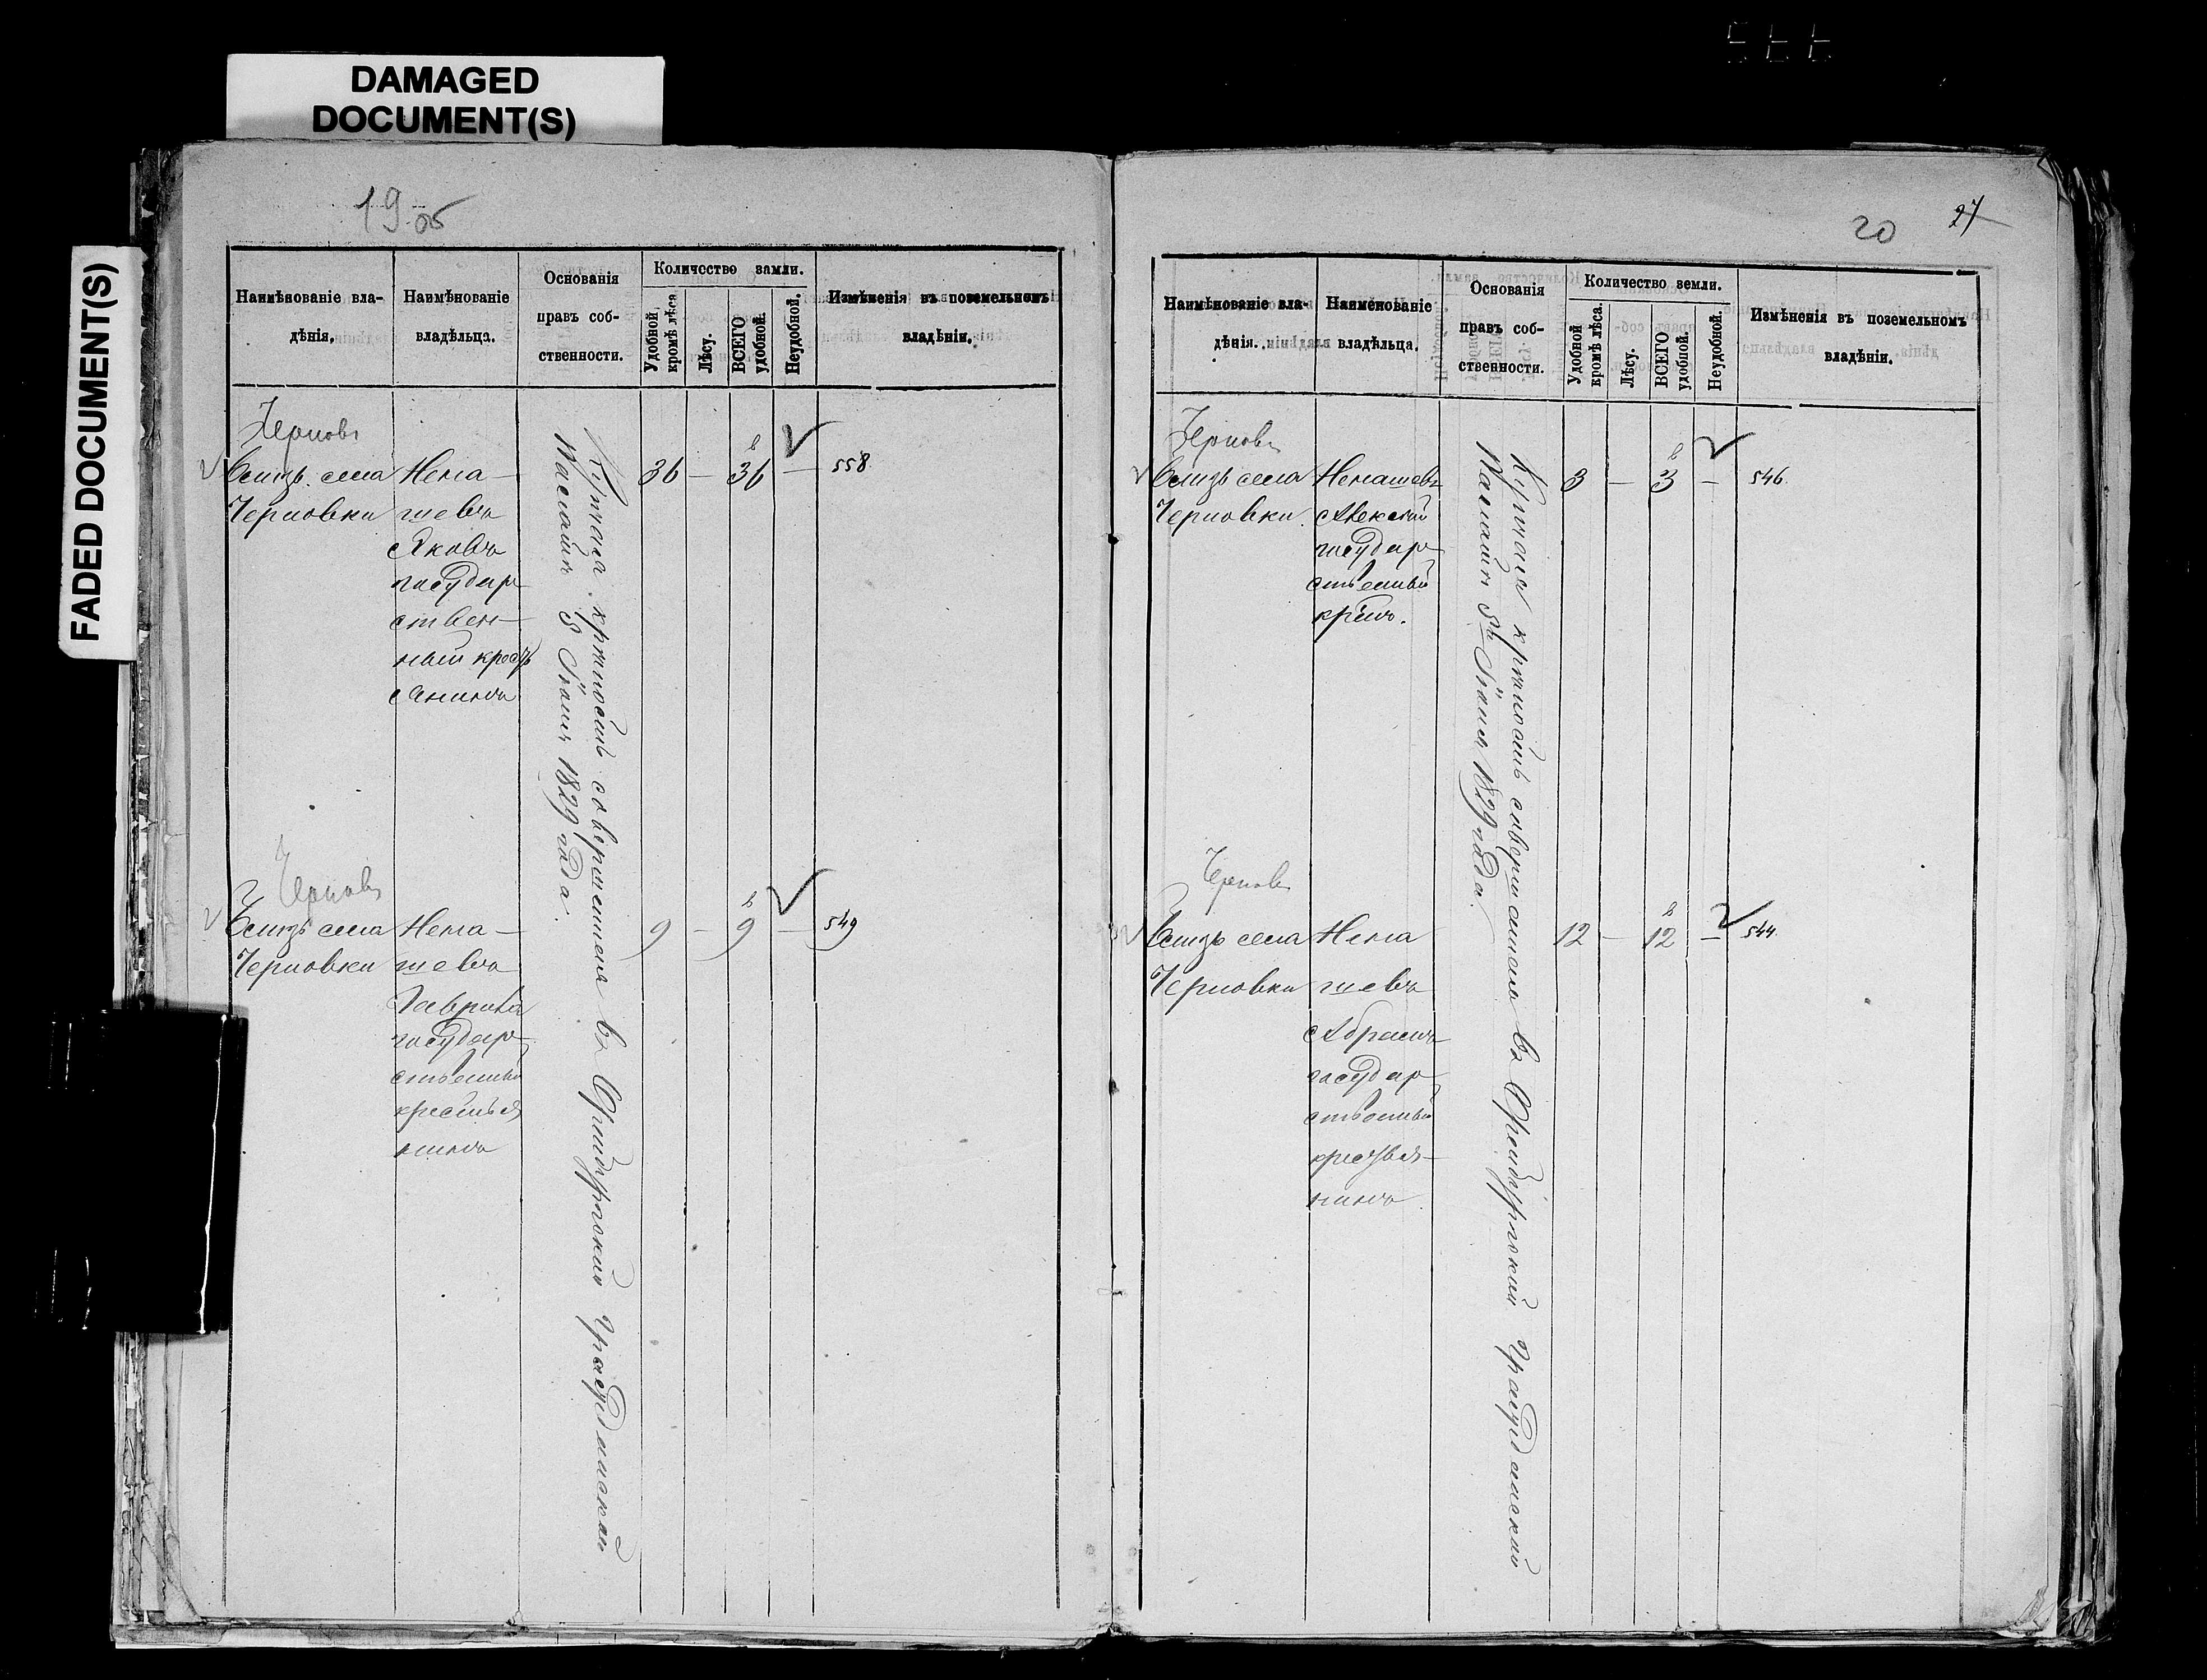 DAMAGED
DOCUMENT(S)
FADED DOCUMENT(S)
19 об
Наимѣнованіе вла-
дѣнія.
Наимѣнованіе
владѣльца.
Основанія
правъ соб-
ственности.
Количество земли.
Удобной
кромѣ лѣса
Лѣсу.
ВСЕГО
удобной.
Неудобной.
Измѣненія въ поземельномъ
владѣніи.
Чернов.
Близь села
Черновки
Нена-
шевъ
Яковъ
государ
ствен-
ный кресть
янинъ
Купчая крѣпость совершенная въ Оренбургской Гражданской
Палатѣ 5 Іюня 1829 года.
36 — 36 — 558.
Чернов
Близь села
Черновки
Нена-
шевъ
Гаврила
государ-
ственный
крестья
нинъ
9 — 9 — 549
20
27
Наимѣнованіе вла-
дѣнія.
Наименованіе
владѣльца.
Основанія
правъ соб-
ственности.
Количество земли.
Удобной
кромѣ лѣса.
Лѣсу.
ВСЕГО
удобной.
Неудобной.
Измѣненія въ поземельномъ
владѣніи.
Чернов
Близь села
Черновки
Ненашевъ
Алексѣй
государ-
ственный
кр-инъ.
Купчая крѣпость совершенная въ Оренбургской Гражданской
Палатѣ 5го Іюня 1829 года.
3 — 3 — 546.
Чернов
Близь села
Черновки
Нена
шевъ
Абрамъ
государ-
ственный
крестья-
нинъ.
12 — 12 — 544.